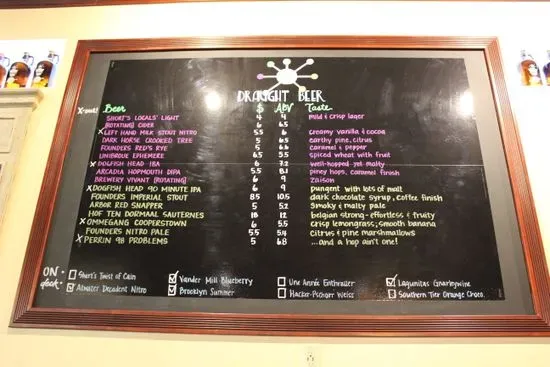 DRAUGHT BEER
X=out! Beer $ ABV Taste
SHORT'S LOCALS' LIGHT 4 4 mild & crisp lager
(ROTATING) CIDER 6 6.5
X LEFT HAND MILK STOUT NITRO 5.5 6 creamy vanilla & cocoa
DARK HORSE CROOKED TREE 5 6.5 earthy pine, citrus
FOUNDERS RED'S RYE 5 6.6 caramel & pepper
UNIBROUE EPHEMERE 6.5 5.5 spiced wheat with fruit
X DOGFISH HEAD IBA 6 7.2 well-hopped yet malty
ARCADIA HOPMOUTH DIPA 5.5 8.1 piney hops, caramel finish
BREWERY VIVANT (ROTATING) 6 9 zaison
X DOGFISH HEAD 90 MINUTE IPA 6 9 pungent with lots of malt
FOUNDERS IMPERIAL STOUT 8.5 10.5 dark chocolate syrup, coffee finish
ARBOR RED SNAPPER 5 5.2 smoky & malty pale
HOF TEN DORMAAL SAUTERNES 18 12 belgian strong-effortless & fruity
X OMMEGANG COOPERSTOWN 6 5.5 crisp lemongrass; smooth banana
FOUNDERS NITRO PALE 5.5 5.4 citrus & pine marshmallows
X PERRIN 98 PROBLEMS 5 6.8 ...and a hop ain't one!
ON deck:
Short's Twist of Cain Vander Mill Blueberry Une Année Enthraller Lagunitas Gnarleywine
Atwater Decadent Nitro Brooklyn Summer Hacker-Pschorr Weiss Southern Tier Orange Choco.